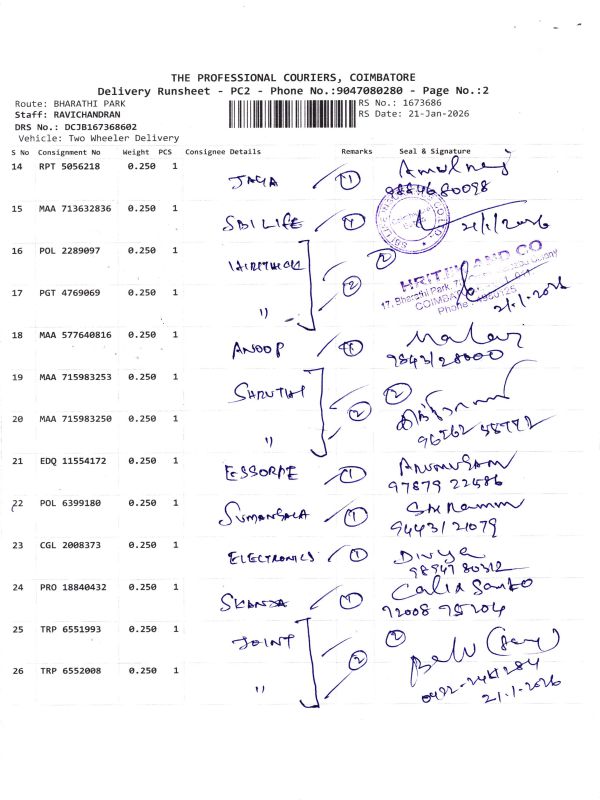 THE PROFESSIONAL COURIERS, COIMBATORE
Delivery Runsheet - PC2 - Phone No.:9047080280 - Page No.:2
Route: BHARATHI PARK RS No.: 1673686
Staff: RAVICHANDRAN RS Date: 21-Jan-2026
DRS No.: DCJB167368602
Vehicle: Two Wheeler Delivery
S No Consignment No Weight PCS Consignee Details Remarks Seal & Signature
14 RPT 5056218 0.250 1 JAYA 1
9884680098
15 MAA 713632836 0.250 1 SBI LIFE 1 21/1/2026
16 POL 2289097 0.250 1 2
HRITIK AND CO
17, Bharathi Park, 7
COIMBA
Phone
17 PGT 4769069 0.250 1 " 2 21-1-2026
18 MAA 577640816 0.250 1 ANOOP 1
9843128000
19 MAA 715983253 0.250 1 SHRUTHI 2
20 MAA 715983250 0.250 1 " 2
96262 58772
21 EDQ 11554172 0.250 1 ESSORPE 1
97879 22586
22 POL 6399180 0.250 1 SUMANGALA 1
94431 21079
23 CGL 2008373 0.250 1 ELECTRONICS 1 Divya
98947 80312
24 PRO 18840432 0.250 1 SKANDA 1
92008 95204
25 TRP 6551993 0.250 1 JOINT 2
Babu
26 TRP 6552008 0.250 1 " 2
21-1-2026